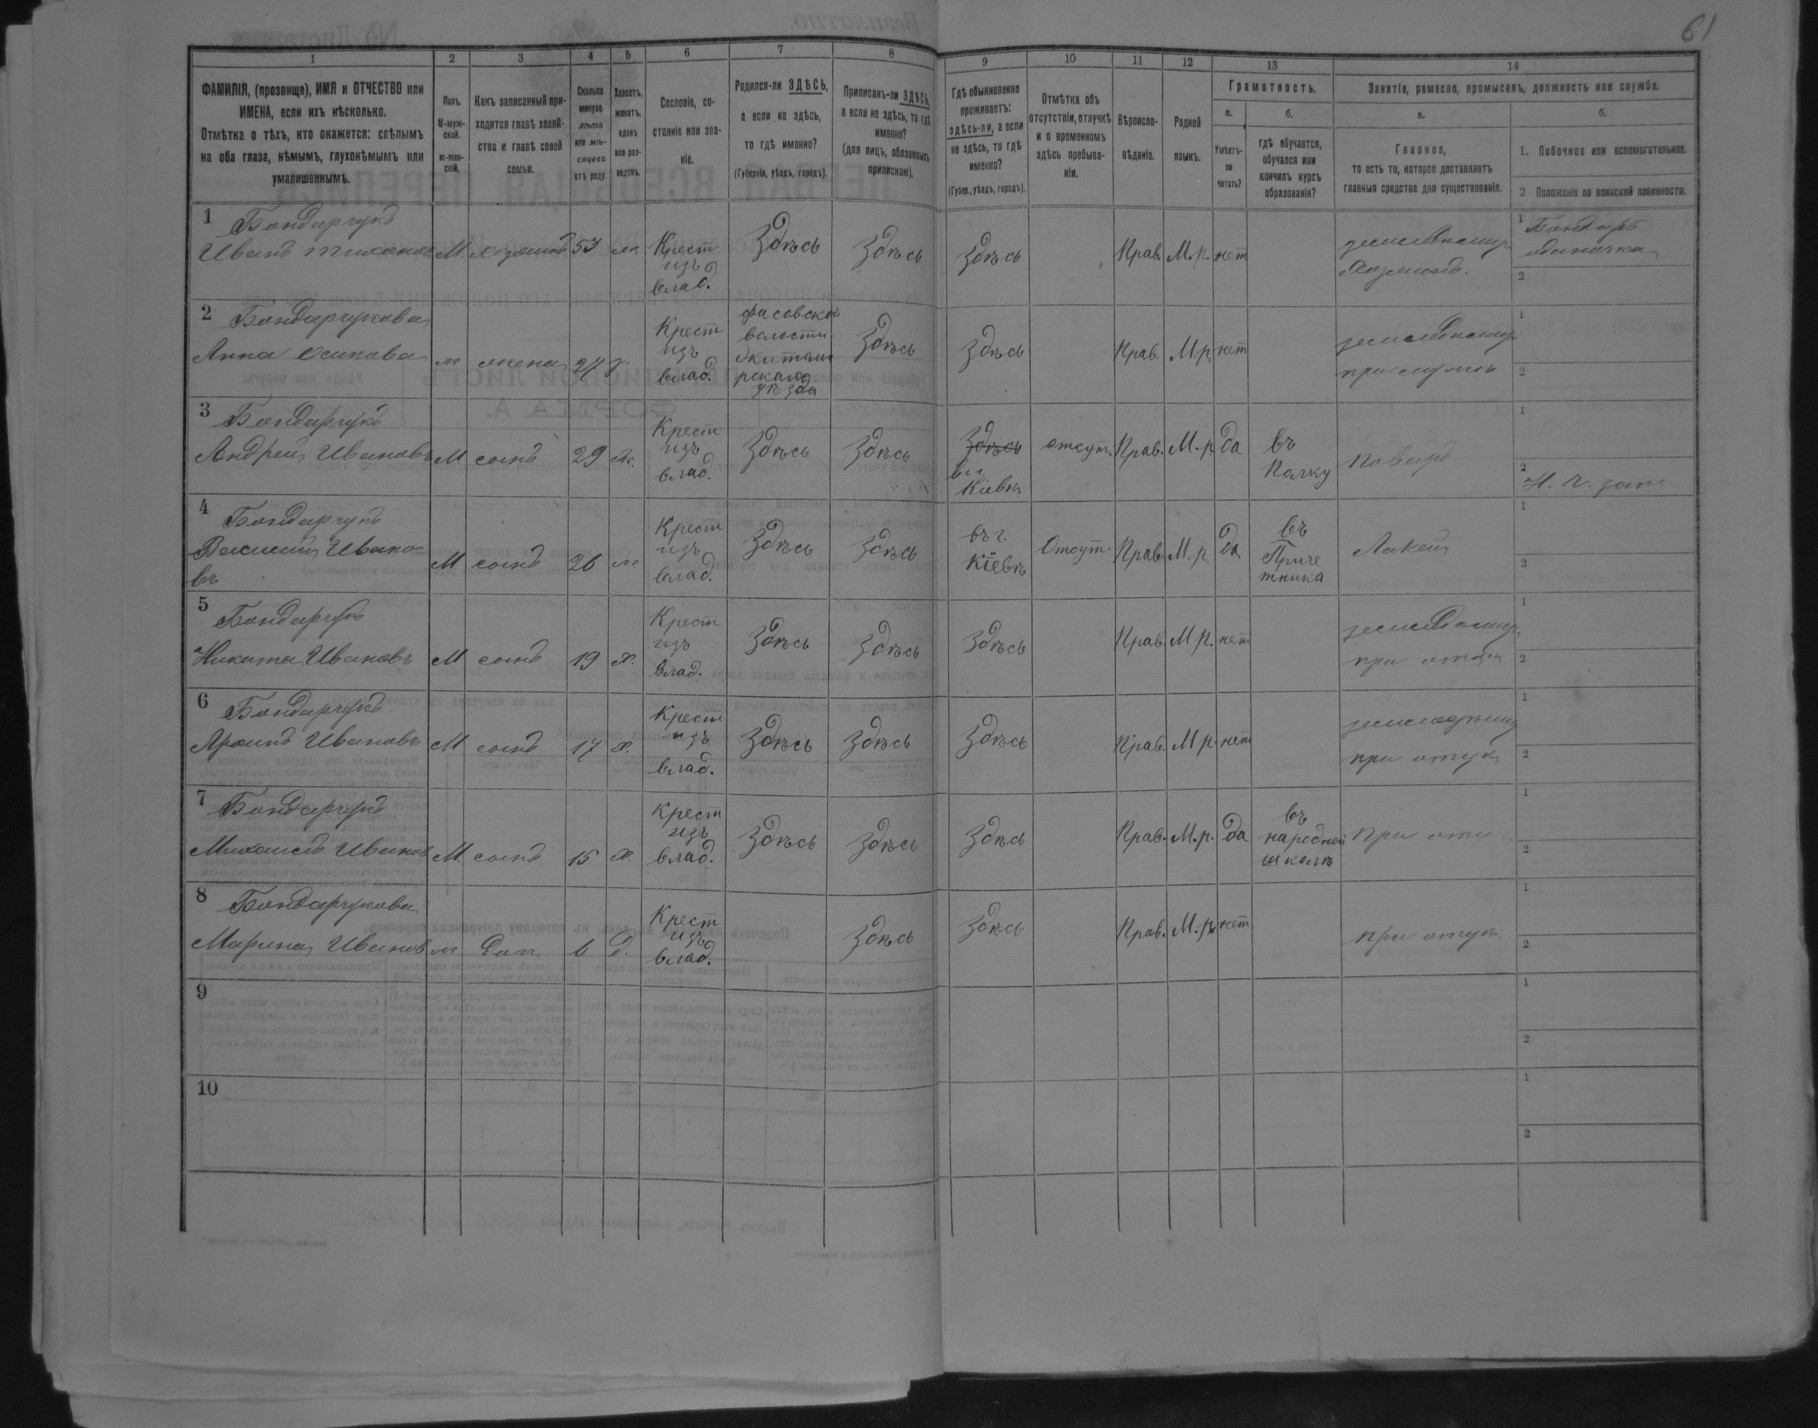 61
1 2 3 4 5 6 7 8 9 10 11 12 13 14
ФАМИЛІЯ, (прозвище), ИМЯ и ОТЧЕСТВО или
ИМЕНА, если ихъ нѣсколько.
Отмѣтка о тѣхъ, кто окажется: слѣпымъ
на оба глаза, нѣмымъ, глухонѣмымъ или
умалишеннымъ.
Полъ.
М-муж-
ской.
ж-жен-
скій.
Какъ записанный при-
ходится главѣ хозяй-
ства и главѣ своей
семьи.
Сколько
минуло
лѣтъ
или мѣ-
сяцевъ
отъ роду.
Холостъ,
женатъ,
вдовъ
или раз-
веденъ.
Сословіе, со-
стояніе или зва-
ніе.
Родился-ли ЗДѢСЬ,
а если не здѣсь,
то гдѣ именно?
(Губернія, уѣздъ, городъ).
Приписанъ-ли ЗДѢСЬ,
а если не здѣсь, то гдѣ
именно?
(для лицъ, обязанныхъ
припискою).
Гдѣ обыкновенно
проживаетъ:
здѣсь-ли, а если
не здѣсь, то гдѣ
именно?
(Губер., уѣздъ, городъ).
Отмѣтка объ
отсутствіи, отлучкѣ
и о временномъ
здѣсь пребыва-
ніи.
Вѣроиспо-
вѣданіе.
Родной
языкъ.
Грамотность.
а.
Умѣетъ-
ли
читать?
б.
гдѣ обучается,
обучался или
кончилъ курсъ
образованія?
Занятіе, ремесло, промыселъ, должность или служба.
а.
Главное,
то есть то, которое доставляетъ
главныя средства для существованія.
б.
1. Побочное или вспомогательное.
2 Положеніе по воинской повинности.
1 Бондарчукъ
Иванъ М хозяинъ 53 Крест
изъ
влад. Здѣсь Здѣсь Здѣсь Прав. М.р. нет
1 Бондарь
одиночка
2
2 Бондарчукова
Анна Осипова жена 27 Крест
изъ
влад.
волости
Житоми
рскаго
уѣзда
Здѣсь Здѣсь Прав. М.р. нет
при мужѣ
1
2
3 Бондарчукъ
Андрей Ивановъ М сынъ 29 Крест
изъ
влад. Здѣсь Здѣсь Здѣсь
Кіевѣ
отсут. Прав. М.р. да въ
Полку Поваръ
1
2
4 Бондарчукъ
Василий Ивано-
въ М сынъ 26 Крест
изъ
влад. Здѣсь Здѣсь въ г.
Кіевѣ Отсут. Прав. М.р. да въ
Приче
тника Лакей
1
2
5 Бондарчукъ
Никита Ивановъ М сынъ 19 Х. Крест
изъ
влад. Здѣсь Здѣсь Здѣсь Прав. М.р. нет
при отцѣ
1
2
6 Бондарчукъ
Ивановъ М сынъ 17 Х. Крест
изъ
влад. Здѣсь Здѣсь Здѣсь Прав. М.р. нет
при отцѣ
1
2
7 Бондарчукъ
Михаилъ Иванов М. сынъ 15 Х. Крест
изъ
влад. Здѣсь Здѣсь Здѣсь Прав. М.р. да въ
народной
школѣ
1
2
8 Бондарчукова
Марина Иванов 6 Д. Крест
изъ
влад. Здѣсь Здѣсь Прав. М.р. нет при отцѣ
1
2
9
1
2
10
1
2